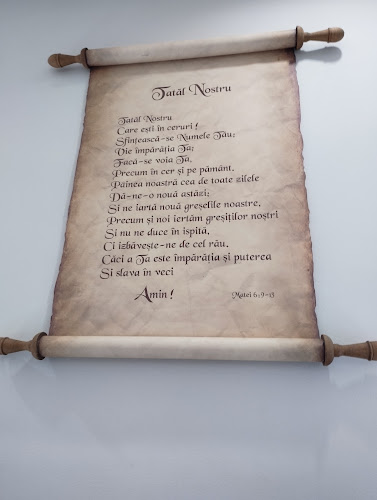 Tatăl Nostru
Tatăl Nostru
Care ești în ceruri!
Sfințească-se Numele Tău;
Vie împărăția Ta;
Facă-se voia Ta,
Precum în cer și pe pământ.
Pâinea noastră cea de toate zilele
Dă-ne-o nouă astăzi;
Și ne iartă nouă greșelile noastre,
Precum și noi iertăm greșiților noștri
Și nu ne duce în ispită,
Ci izbăvește-ne de cel rău.
Căci a Ta este împărăția și puterea
Și slava în veci
Amin!
Matei 6:9-13